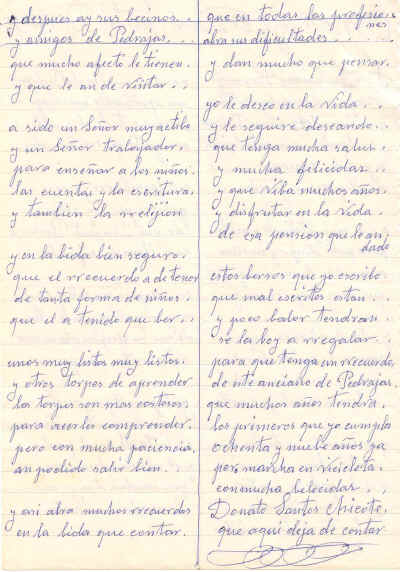 y despues ay sus becinos..
y amigos de Pedrajas...
que mucho afecto le tienen
y que le an de visitar..
a sido un Señor muy actibo
y un Señor trabajador,
para enseñar a los niños.
las cuentas y la escritura,
y tambien la rrelijion
y en la bida bien seguro,
que el rrecuerdo a de tener
de tanta forma de niños,
que el a tenido que ber..
unos muy listos muy listos.
y otros torpes de aprender
los torpes son mas costosos,
para acerles comprender.
pero con mucha paciencia,
an podido salir bien..
y asi abra muchos rrecuerdos
en la bida que contar.
que en todas las profesiones
abra sus dificultades....
y dan mucho que pensar.
yo le deseo en la vida..
y le seguire deseando..
que tenga mucha salud.
y mucha felicidad...
y que viba muchos años,
y disfrutar en la vida.
de esa pension que le an dado
estos bersos que yo escribo
que mal escritos estan..
y poco balor tendran
se la boy a rregalar..
para que tenga un rrecuerdo,
de este anciano de Pedrajas,
que muchos años tendra,
los primeros que yo cumpla
ochenta y nuebe años ya
pero marcha en bicicleta,
con mucha belocidad..
Donato Santos Aricote,
que aqui deja de contar